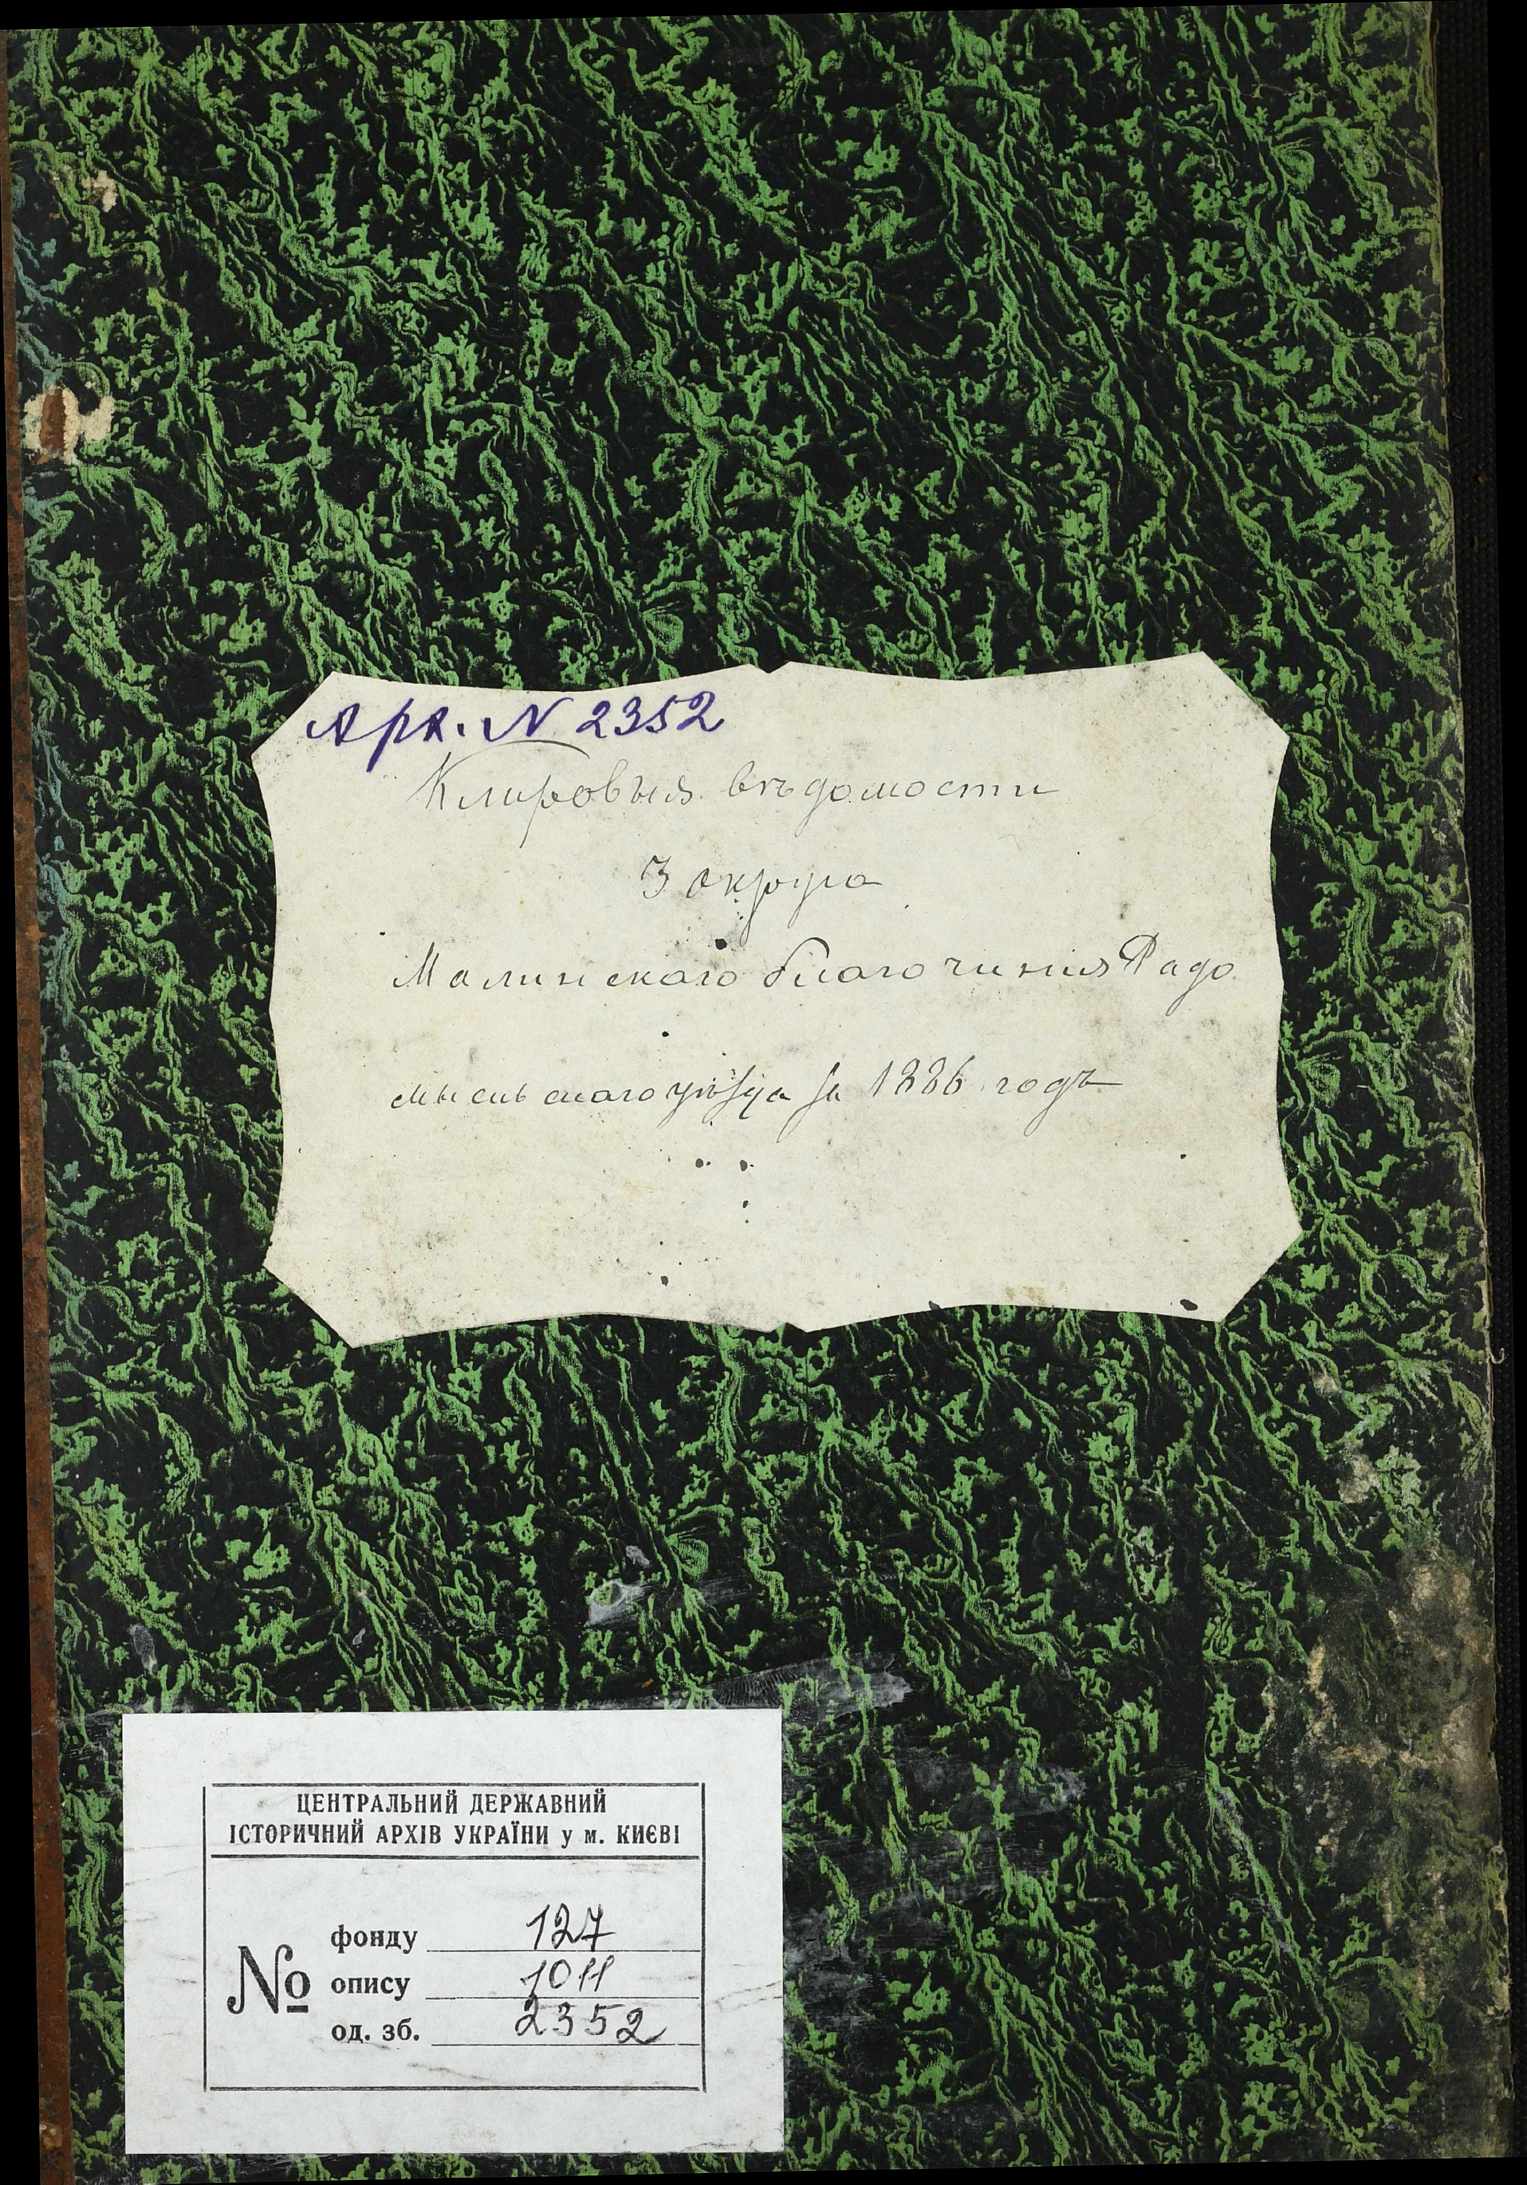 Арх. N 2352
Клировыя вѣдомости
3 округа
Малинскаго благочинія Радо
мысльскаго уѣзда за 1886 годъ
ЦЕНТРАЛЬНИЙ ДЕРЖАВНИЙ
ІСТОРИЧНИЙ АРХІВ УКРАЇНИ у м. КИЄВІ
№
фонду 127
опису 1011
од. зб. 2352